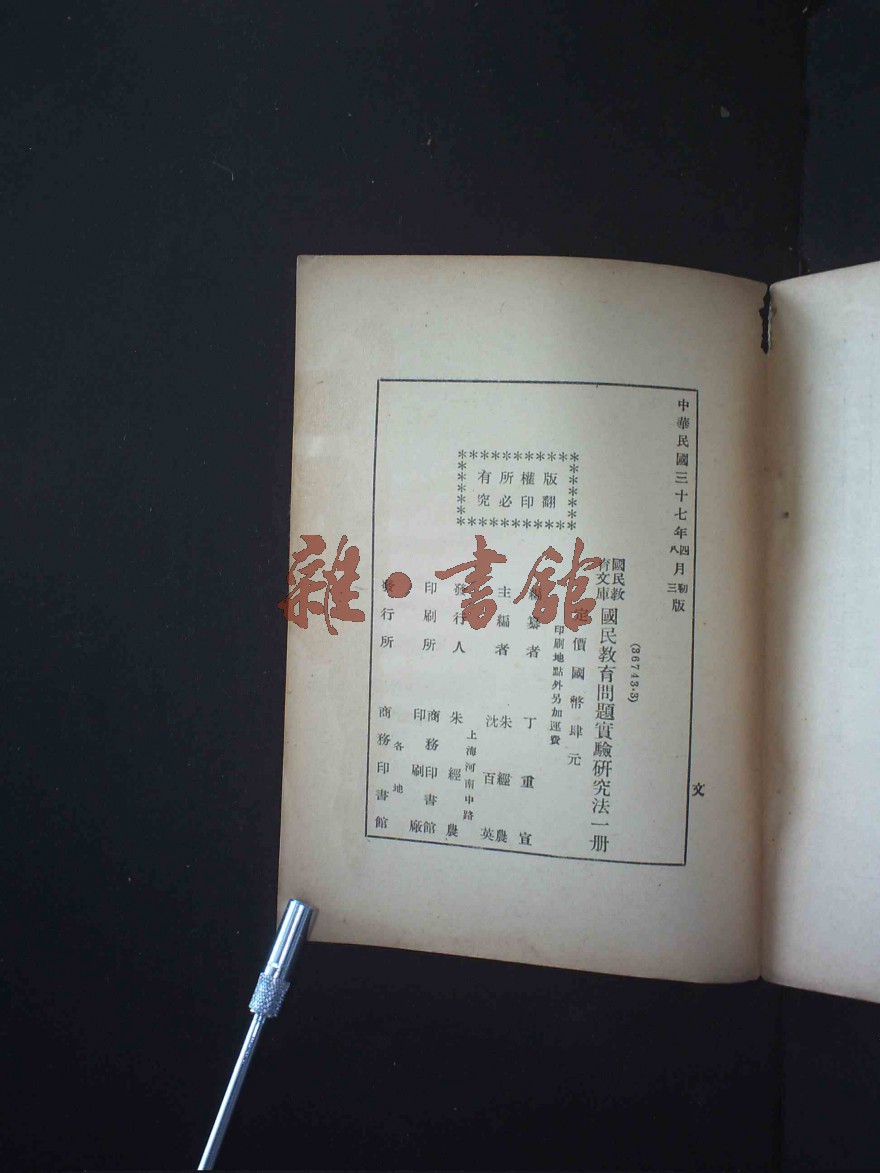 中華民國三十七年四月初版
八 三
(36743·3)
國民教
育文庫
國民教育問題實驗研究法一册
定價國幣肆元
印刷地點外另加運費
版權所有
翻印必究
編纂者 丁重宣
主編者 朱經農
沈百英
上海河南中路
發行人 朱經農
印刷所 商務印書館
印刷廠
各地
發行所 商務印書館
文
雜·書館